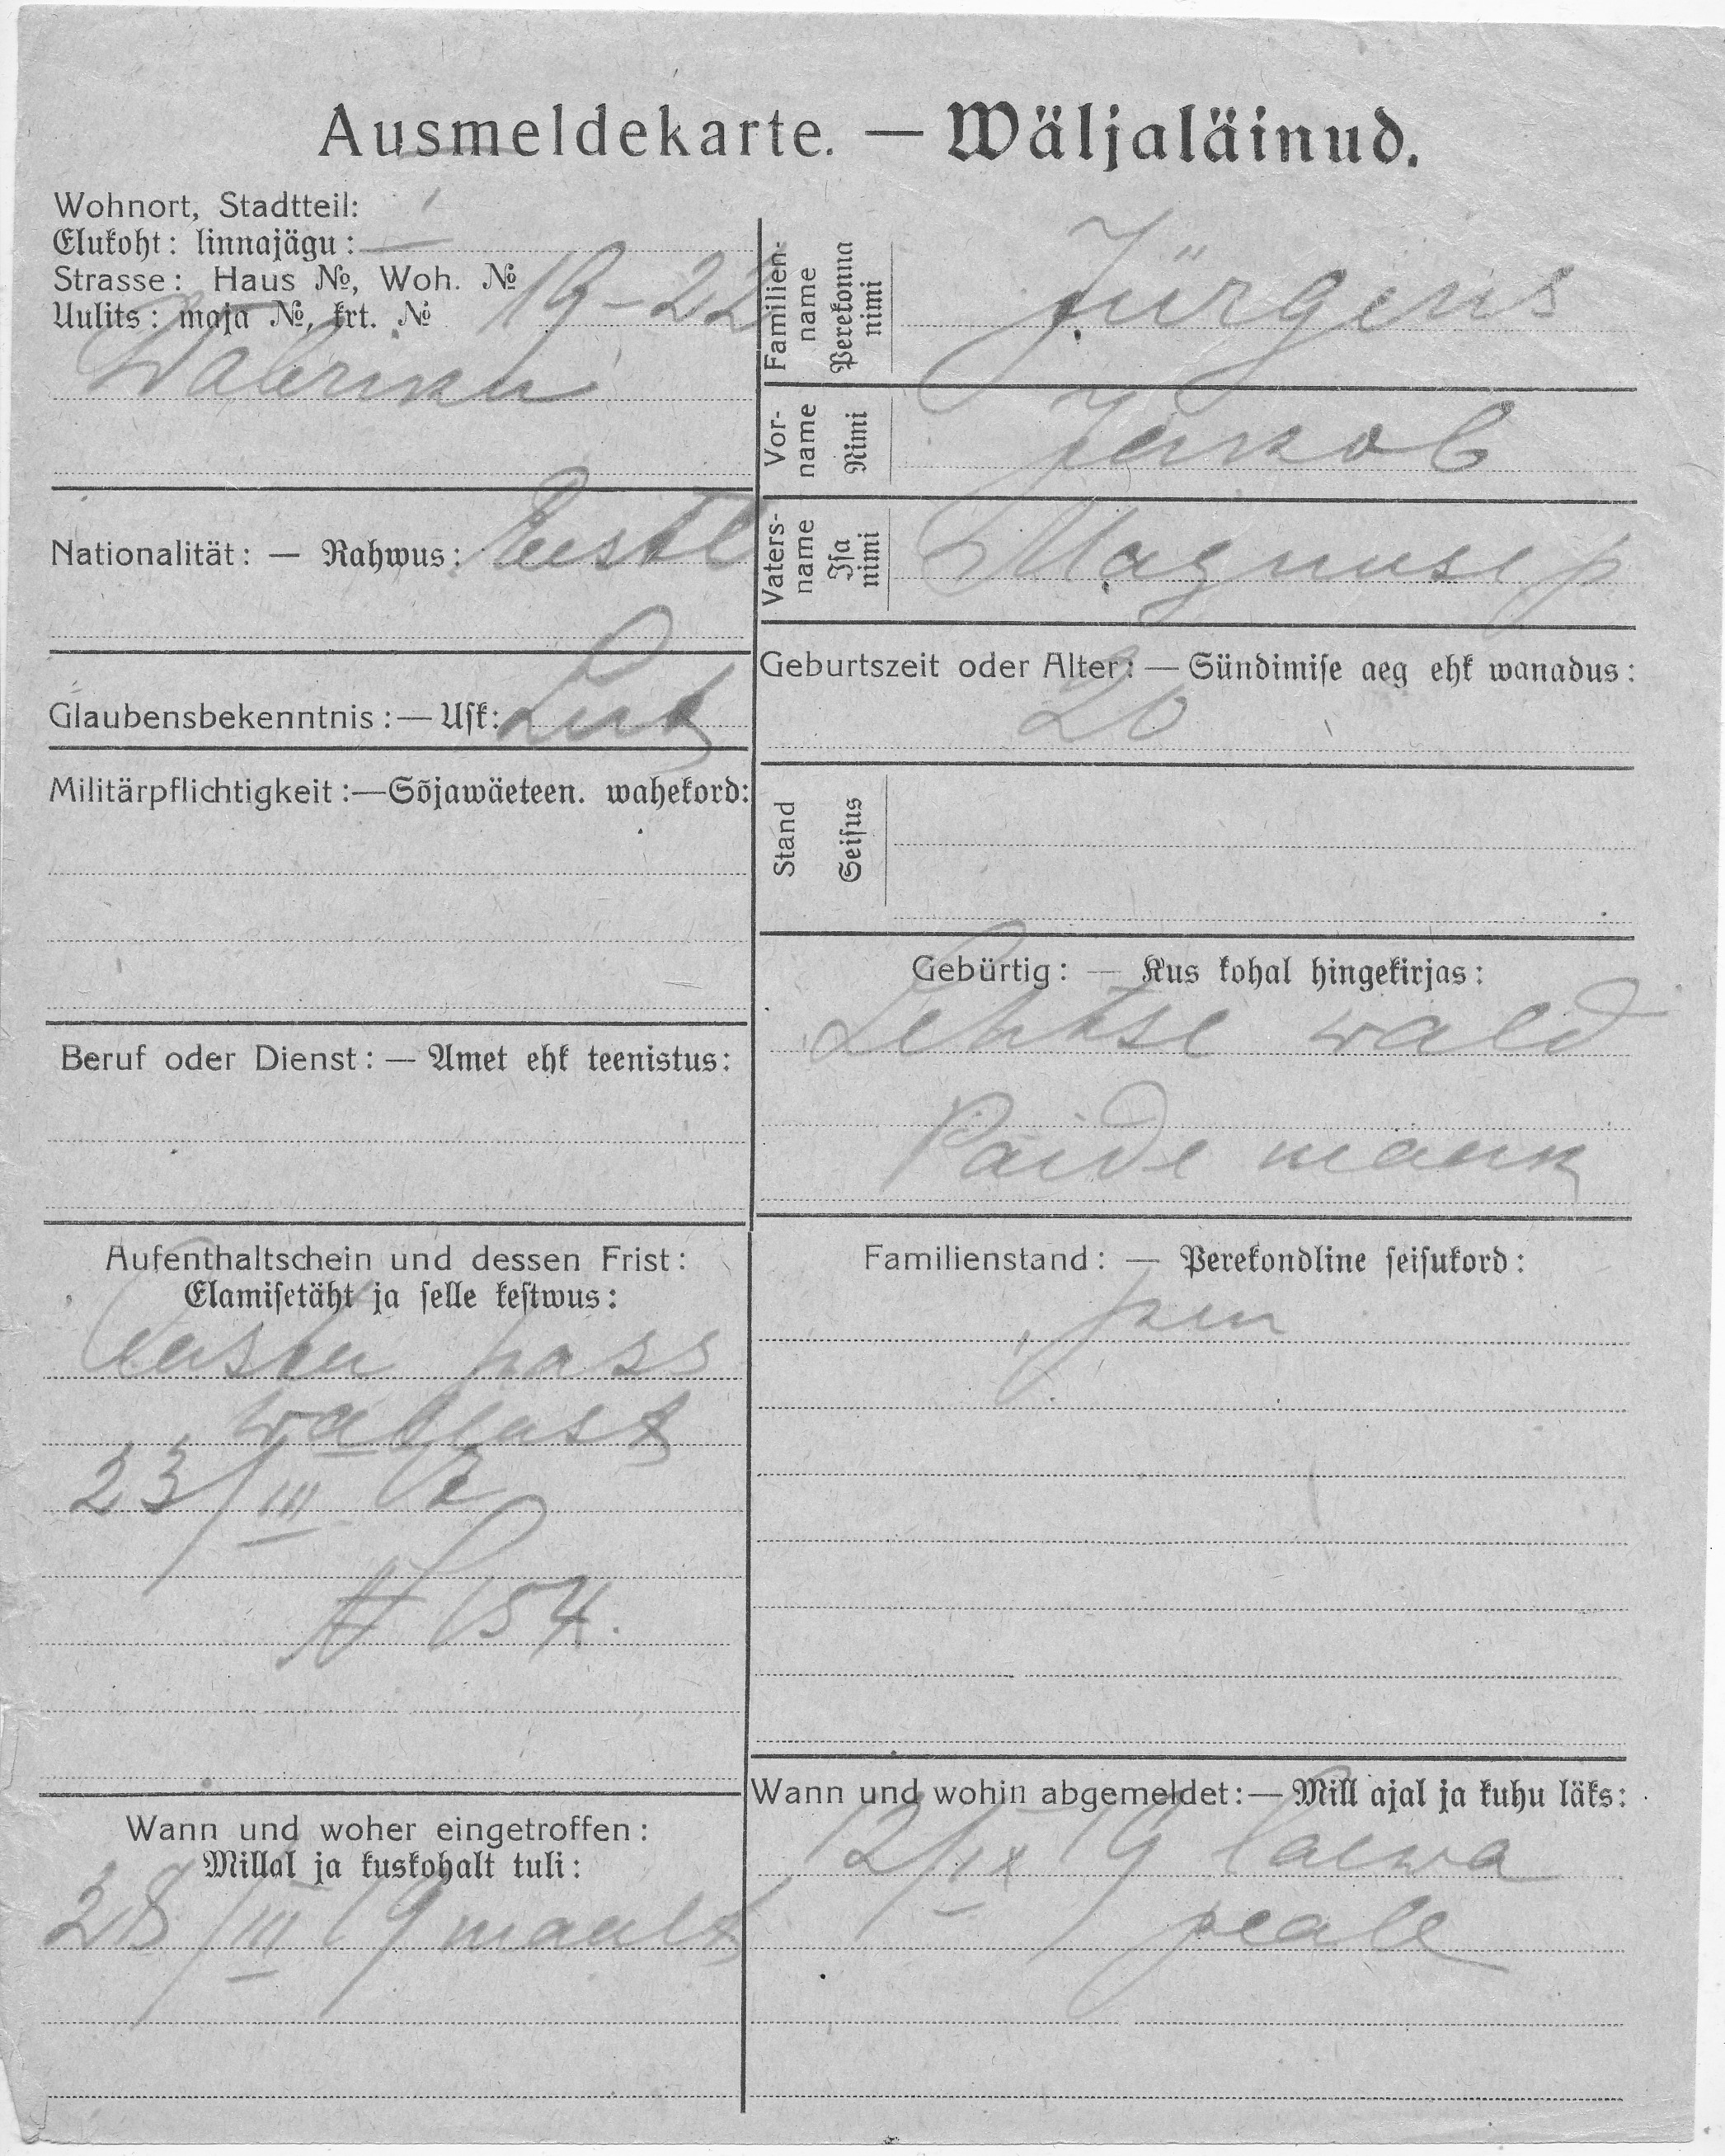 Ausmeldekarte. — Wäljaläinud.
Wohnort, Stadtteil:
Elukoht: linnajägu: I
Strasse: Haus №, Woh. №
Uulits: maja №, krt. № 19-22
Wabriku
Nationalität: — Rahwus: Eestl
Glaubensbekenntnis: — Usk: Lut
Militärpflichtigkeit: — Sõjawäeteen. wahekord:
Beruf oder Dienst: — Amet ehk teenistus:
Aufenthaltschein und dessen Frist:
Elamisetäht ja selle kestwus:
pass
wallast
23/III
№ 154.
Wann und woher eingetroffen:
Millal ja kuskohalt tuli:
28/III 19 maalt
Familien-
name
Perekonna
nimi
Jürgens
Vor-
name
Nimi
Jakob
Vaters-
name
Isa
nimi
Magnuse p
Geburtszeit oder Alter: — Sündimise aeg ehk wanadus:
20
Stand
Seisus
Gebürtig: — Kus kohal hingekirjas:
Lehtse wald
Paide maak
Familienstand: — Perekondline seisukord:
Wann und wohin abgemeldet: — Mill ajal ja kuhu läks:
12/IX 19 laewa
peale